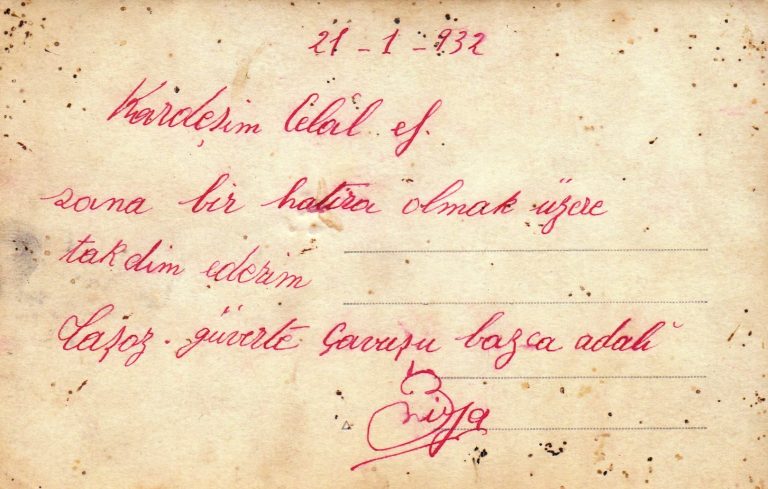 21-1-932
Kardeşim Celâl ef.
sana bir hatıra olmak üzere
takdim ederim
Taşoz. güverte çavuşu bozca adalı
Ziya